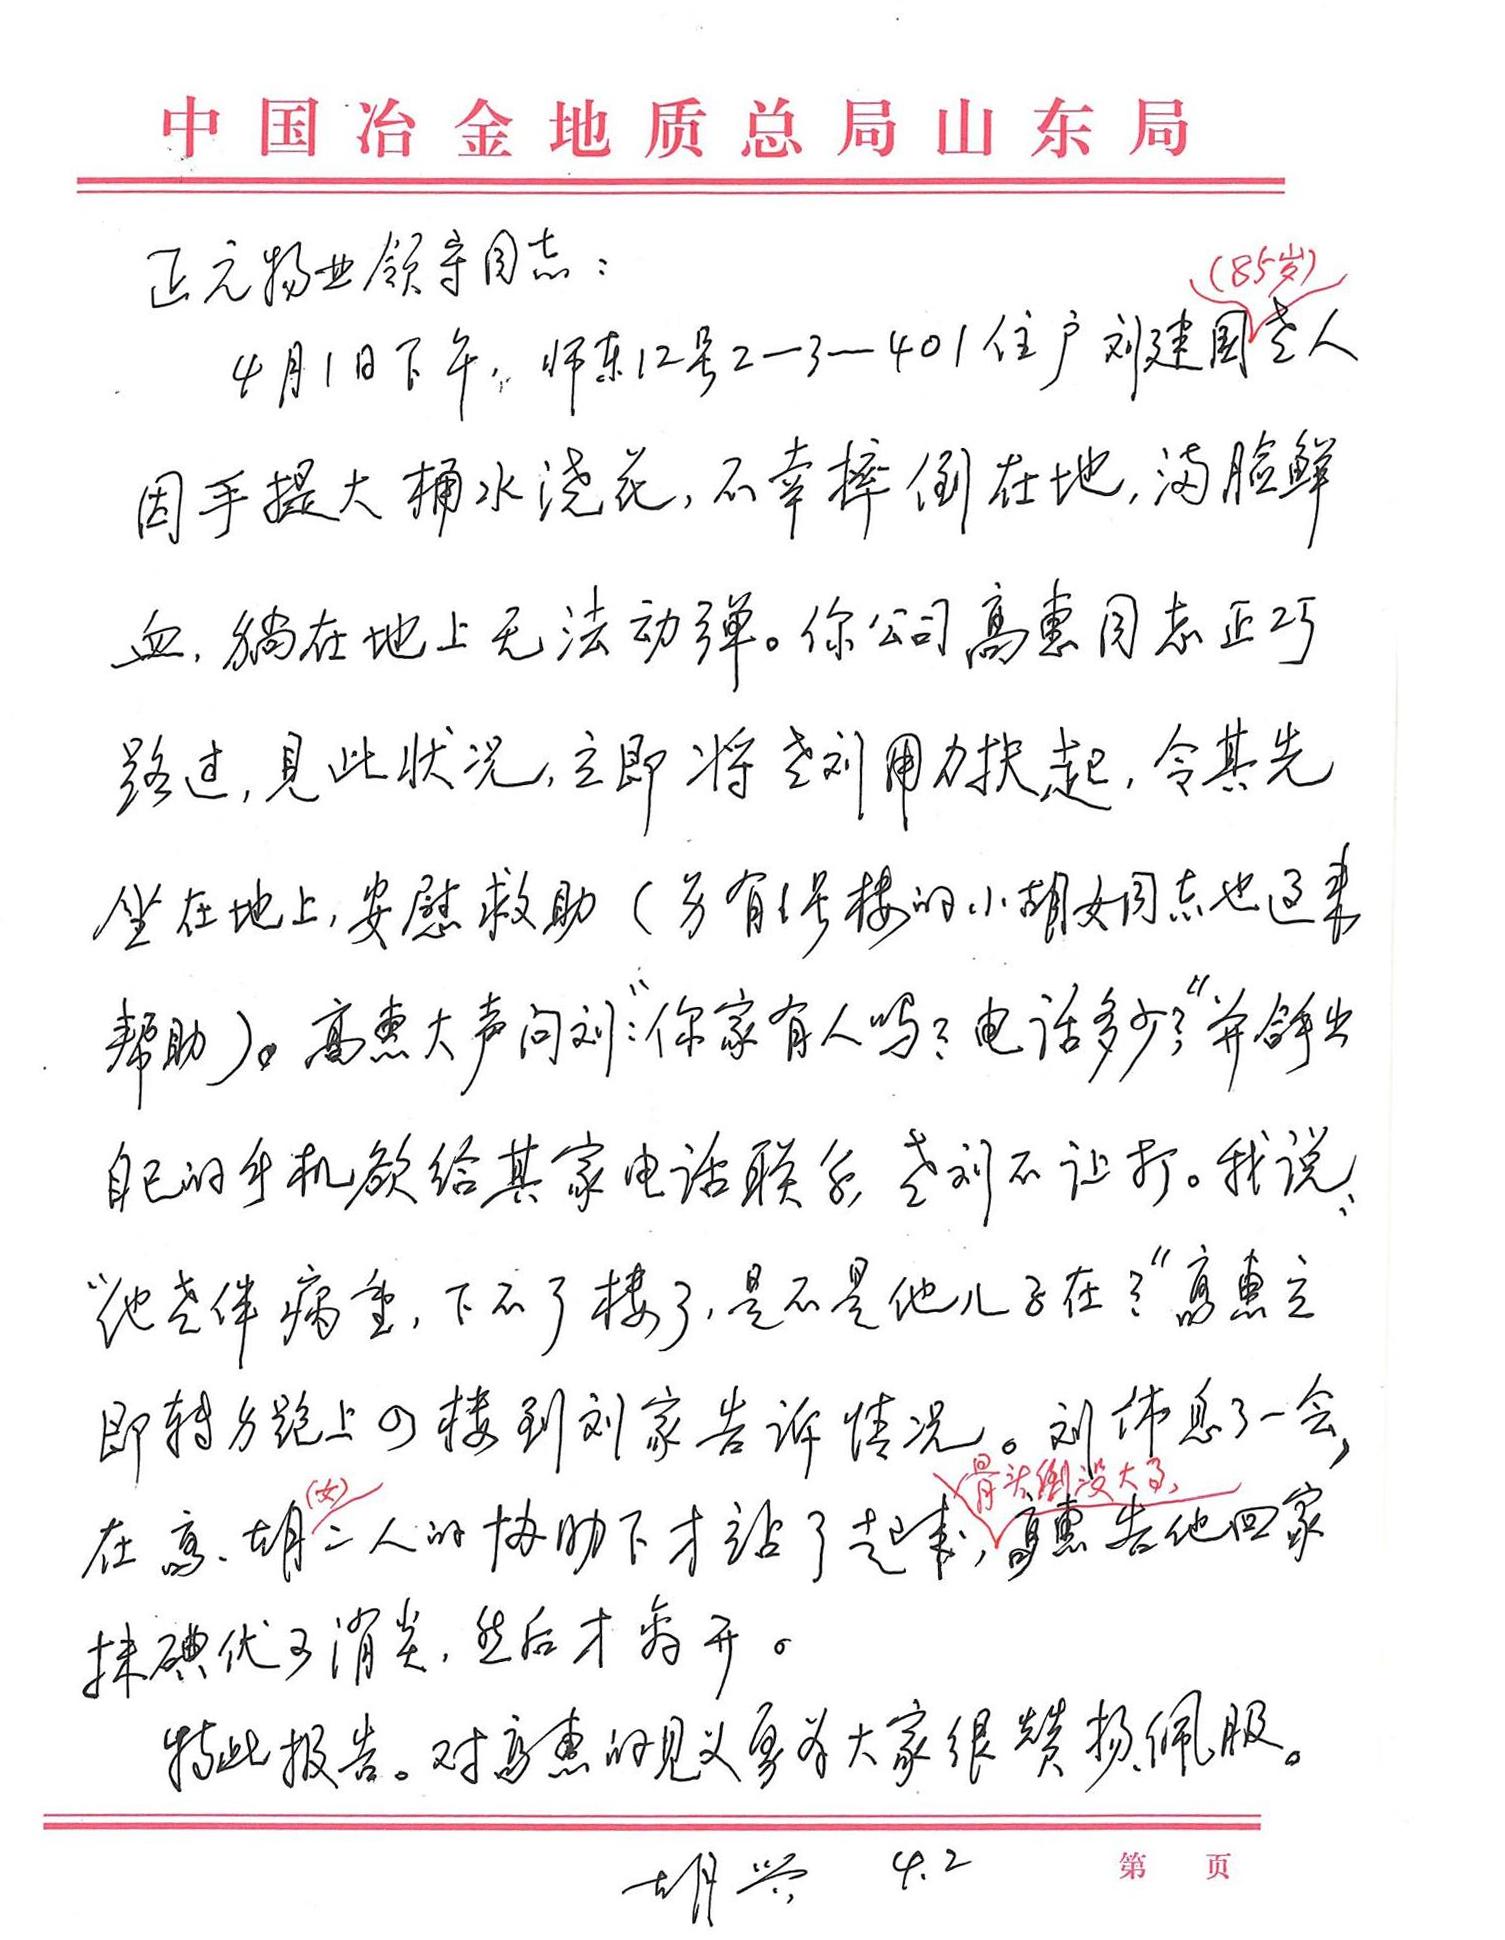 中国冶金地质总局山东局
正元物业领导同志：
(85岁)
4月1日下午，师东12号2—3—401住户刘建国老人
因手提大桶水浇花，不幸摔倒在地，满脸鲜
血，躺在地上无法动弹。你公司高惠同志正巧
路过，见此状况，立即将老刘用力扶起，令其先
坐在地上，安慰救助（另有1号楼的小胡女同志也过来
帮助）。高惠大声问刘：“你家有人吗？电话多少？”并拿出
自己的手机欲给其家电话联系，老刘不让打。我说：
“他老伴病重，下不了楼了，是不是他儿子在？”高惠立
即转方跑上四楼到刘家告诉情况。刘休息了一会，
(女) 骨头倒没大事，
在高、胡二人的协助下才站了起来，高惠告他回家
抹碘伏又消炎，然后才离开。
特此报告。对高惠的见义勇为大家很赞扬、佩服。
胡兴 4.2
第 页